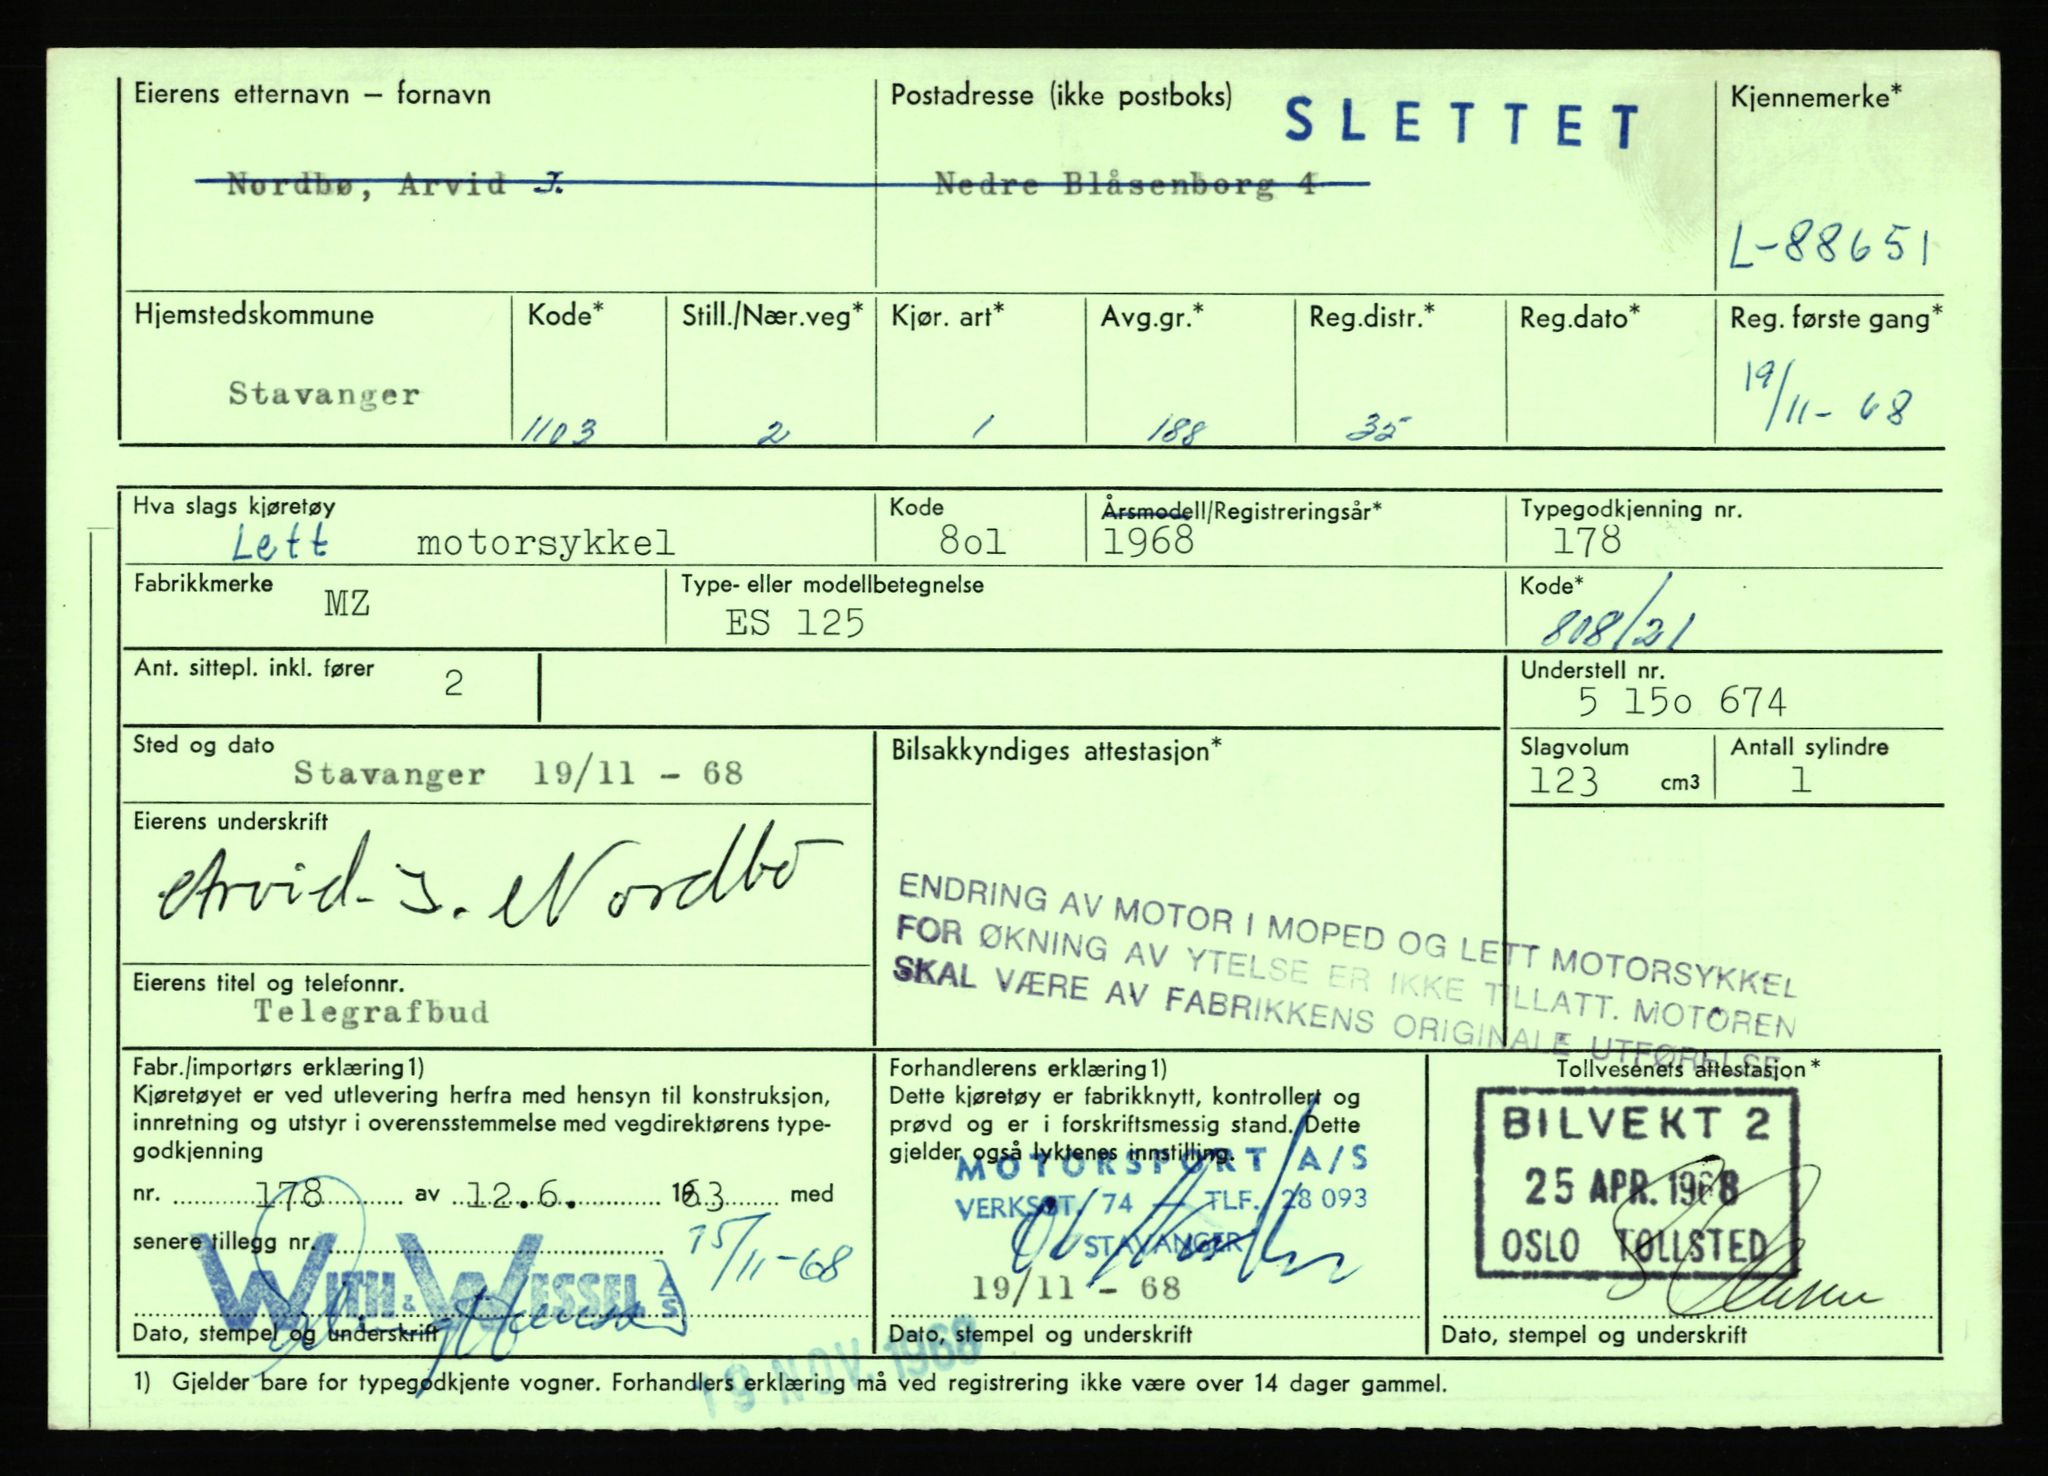 Eierens etternavn – fornavn
Postadresse (ikke postboks)
SLETTET
Kjennemerke*
Nordbø, Arvid J.
Nedre Blåsenborg 4
L-88651
Hjemstedskommune
Kode*
Still./Nær.veg*
Kjør. art*
Avg.gr.*
Reg.distr.*
Reg.dato*
Reg. første gang*
Stavanger
1103
2
1
188
35
19/11-68
Hva slags kjøretøy
Kode
Årsmodell/Registreringsår*
Typegodkjenning nr.
Lett motorsykkel
8o1
1968
178
Fabrikkmerke
Type- eller modellbetegnelse
Kode*
MZ
ES 125
808/21
Ant. sittepl. inkl. fører
2
Understell nr.
5 15o 674
Sted og dato
Stavanger 19/11 - 68
Bilsakkyndiges attestasjon*
Slagvolum
123 cm3
Antall sylindre
1
Eierens underskrift
Arvid J. Nordbö
ENDRING AV MOTOR I MOPED OG LETT MOTORSYKKEL
FOR ØKNING AV YTELSE ER IKKE TILLATT. MOTOREN
SKAL VÆRE AV FABRIKKENS ORIGINALE UTFØRELSE
Eierens titel og telefonnr.
Telegrafbud
Fabr./importørs erklæring 1)
Kjøretøyet er ved utlevering herfra med hensyn til konstruksjon,
innretning og utstyr i overensstemmelse med vegdirektørens type-
godkjenning
nr. 178 av 12.6. 1963 med
senere tillegg nr.
15/11-68
WITH & WESSEL A/S
Dato, stempel og underskrift
Forhandlerens erklæring 1)
Dette kjøretøy er fabrikknytt, kontrollert og
prøvd og er i forskriftsmessig stand. Dette
gjelder også lyktenes innstilling.
MOTORSPORT A/S
VERKSGT. 74 — TLF. 28 093
STAVANGER
19/11 - 68
Dato, stempel og underskrift
Tollvesenets attestasjon*
BILVEKT 2
25 APR. 1968
OSLO TOLLSTED
Dato, stempel og underskrift
19 NOV. 1968
1) Gjelder bare for typegodkjente vogner. Forhandlers erklæring må ved registrering ikke være over 14 dager gammel.